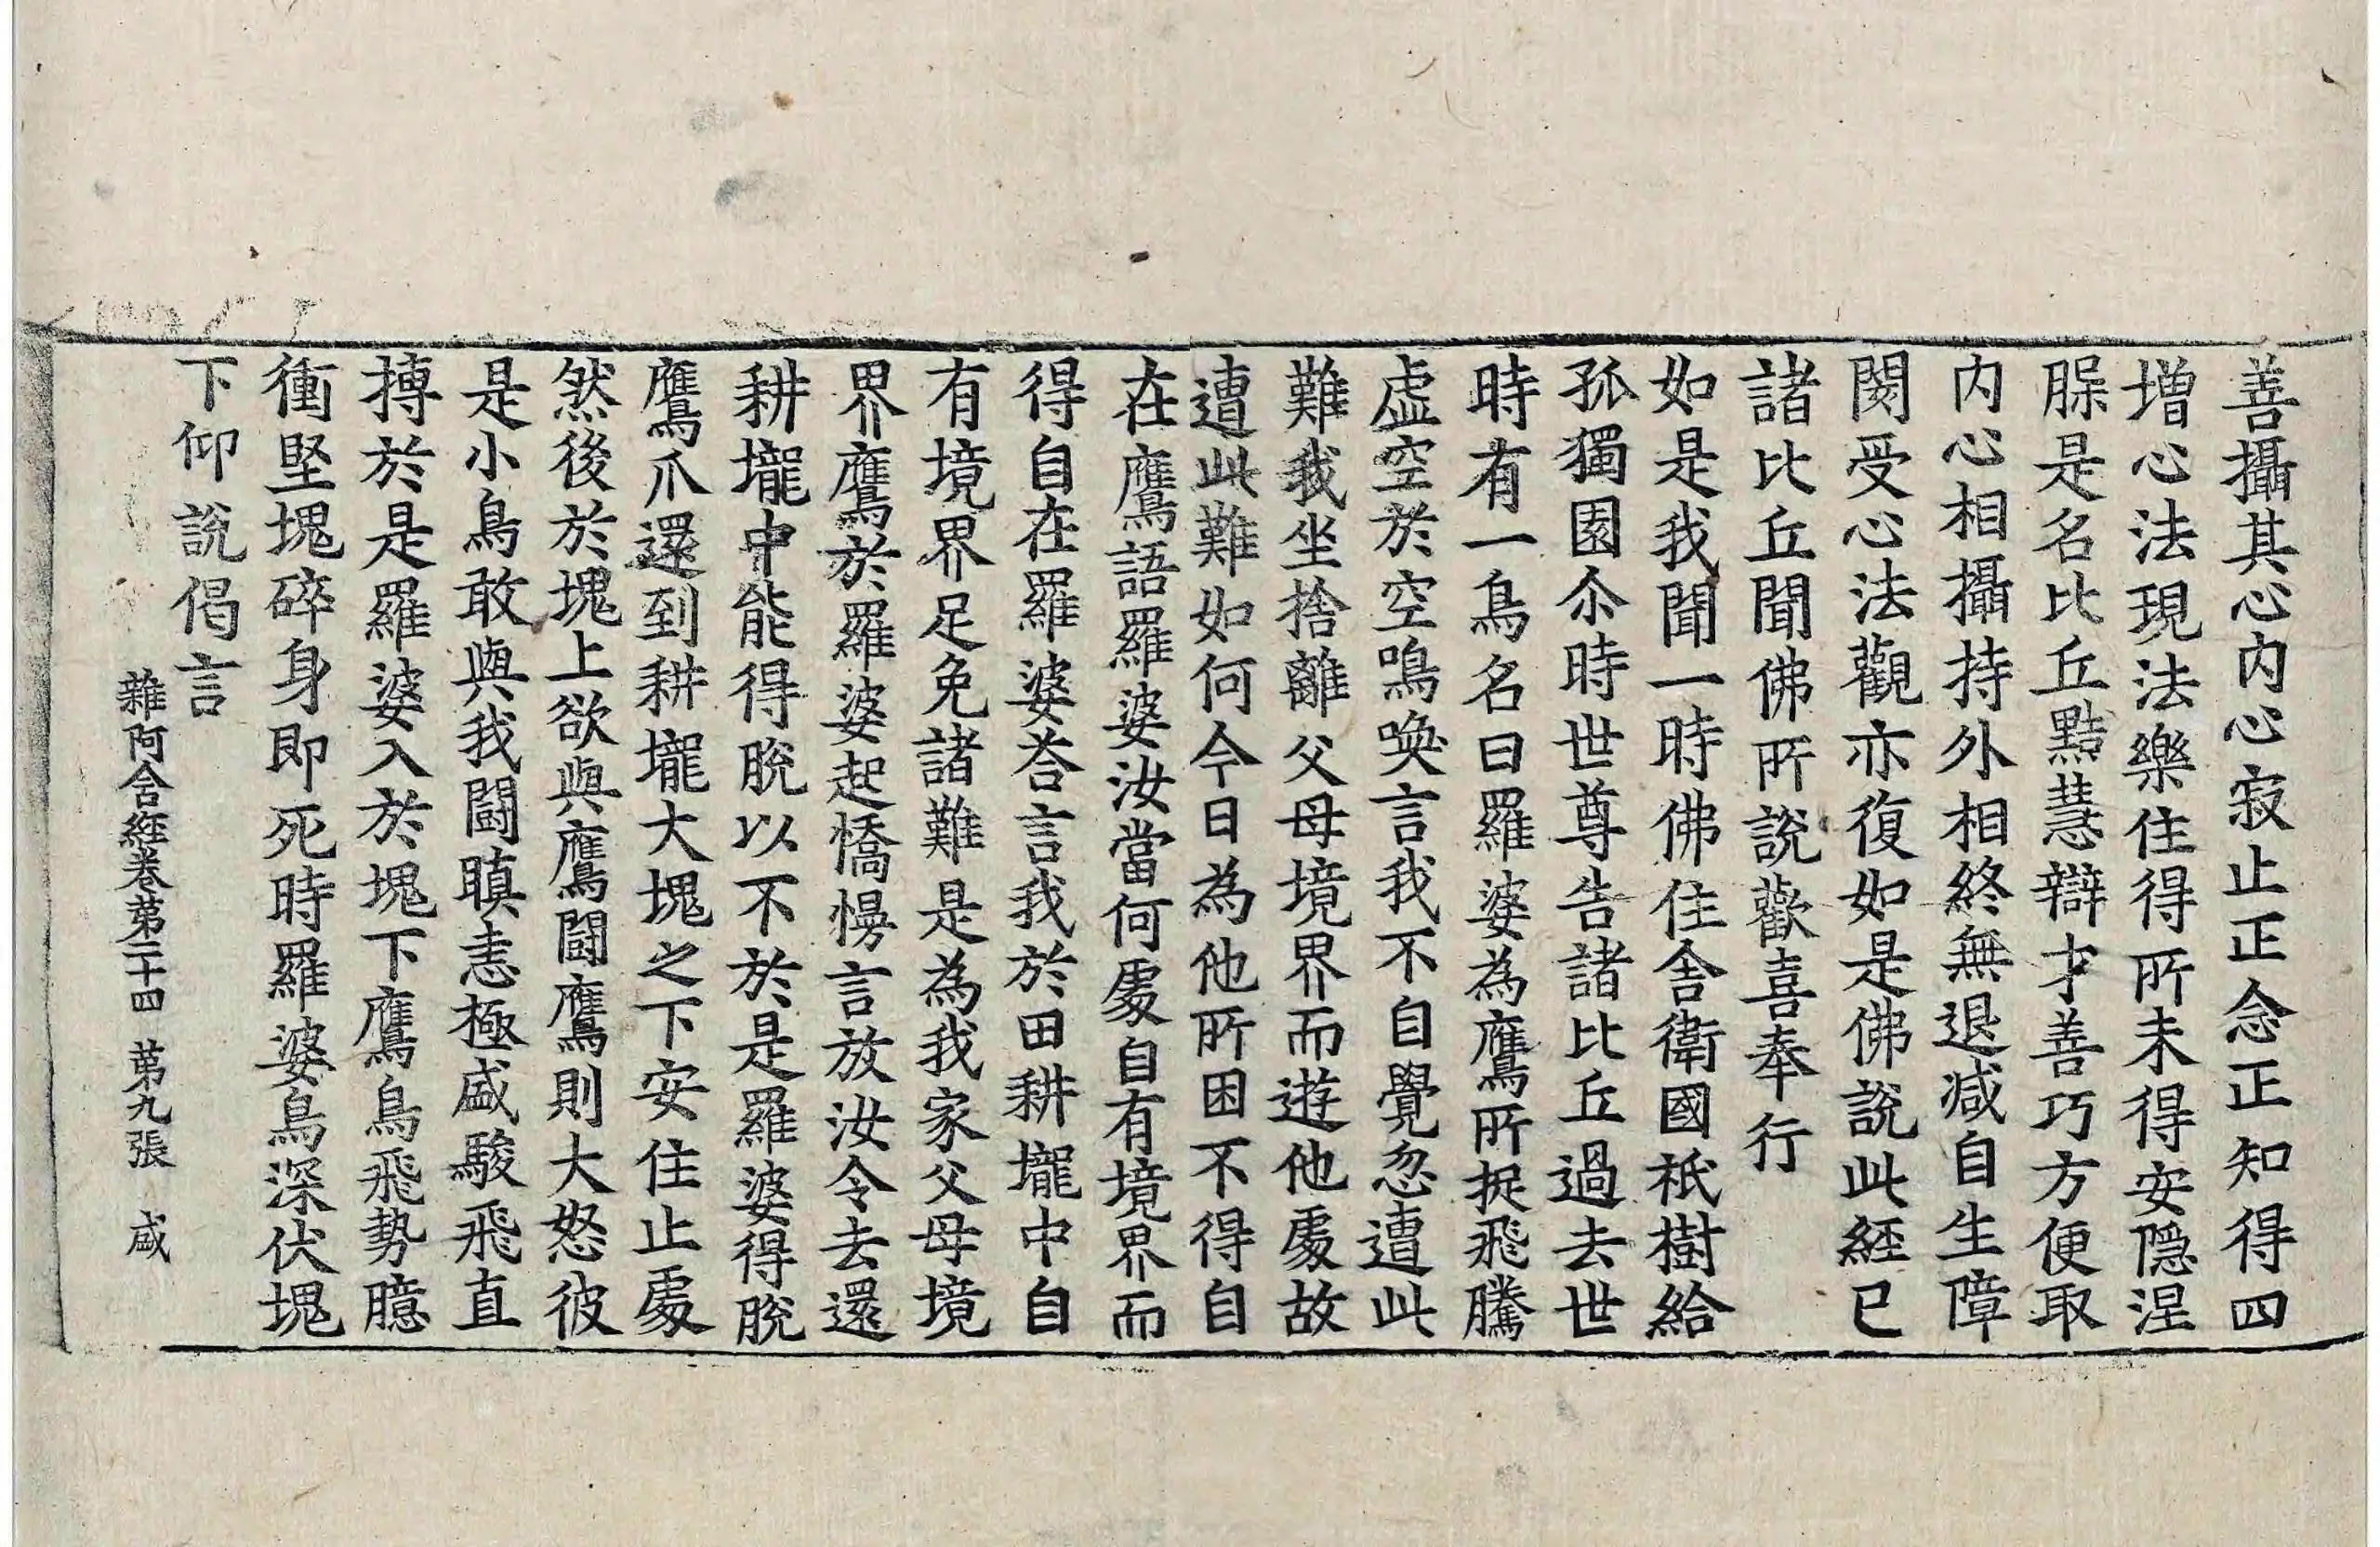 善攝其心內心寂止正念正知得四
增心法現法樂住得所未得安隱涅
槃是名比丘黠慧辯才善巧方便取
內心相攝持外相終無退減自生障
閡受心法觀亦復如是佛說此經已
諸比丘聞佛所說歡喜奉行
如是我聞一時佛住舍衛國祇樹給
孤獨園尒時世尊告諸比丘過去世
時有一鳥名曰羅婆為鷹所捉飛騰
虛空於空鳴喚言我不自覺忽遭此
難我坐捨離父母境界而遊他處故
遭此難如何今日為他所困不得自
在鷹語羅婆汝當何處自有境界而
得自在羅婆荅言我於田耕壠中自
有境界足免諸難是為我家父母境
界鷹於羅婆起憍慢言放汝令去還
耕壠中能得脫以不於是羅婆得脫
鷹爪還到耕壠大塊之下安住止處
然後於塊上欲與鷹鬪鷹則大怒彼
是小鳥敢與我鬪瞋恚極盛駿飛直
搏於是羅婆入於塊下鷹鳥飛勢臆
衝堅塊碎身即死時羅婆鳥深伏塊
下仰說偈言
雜阿含經卷苐二十四 苐九張 咸